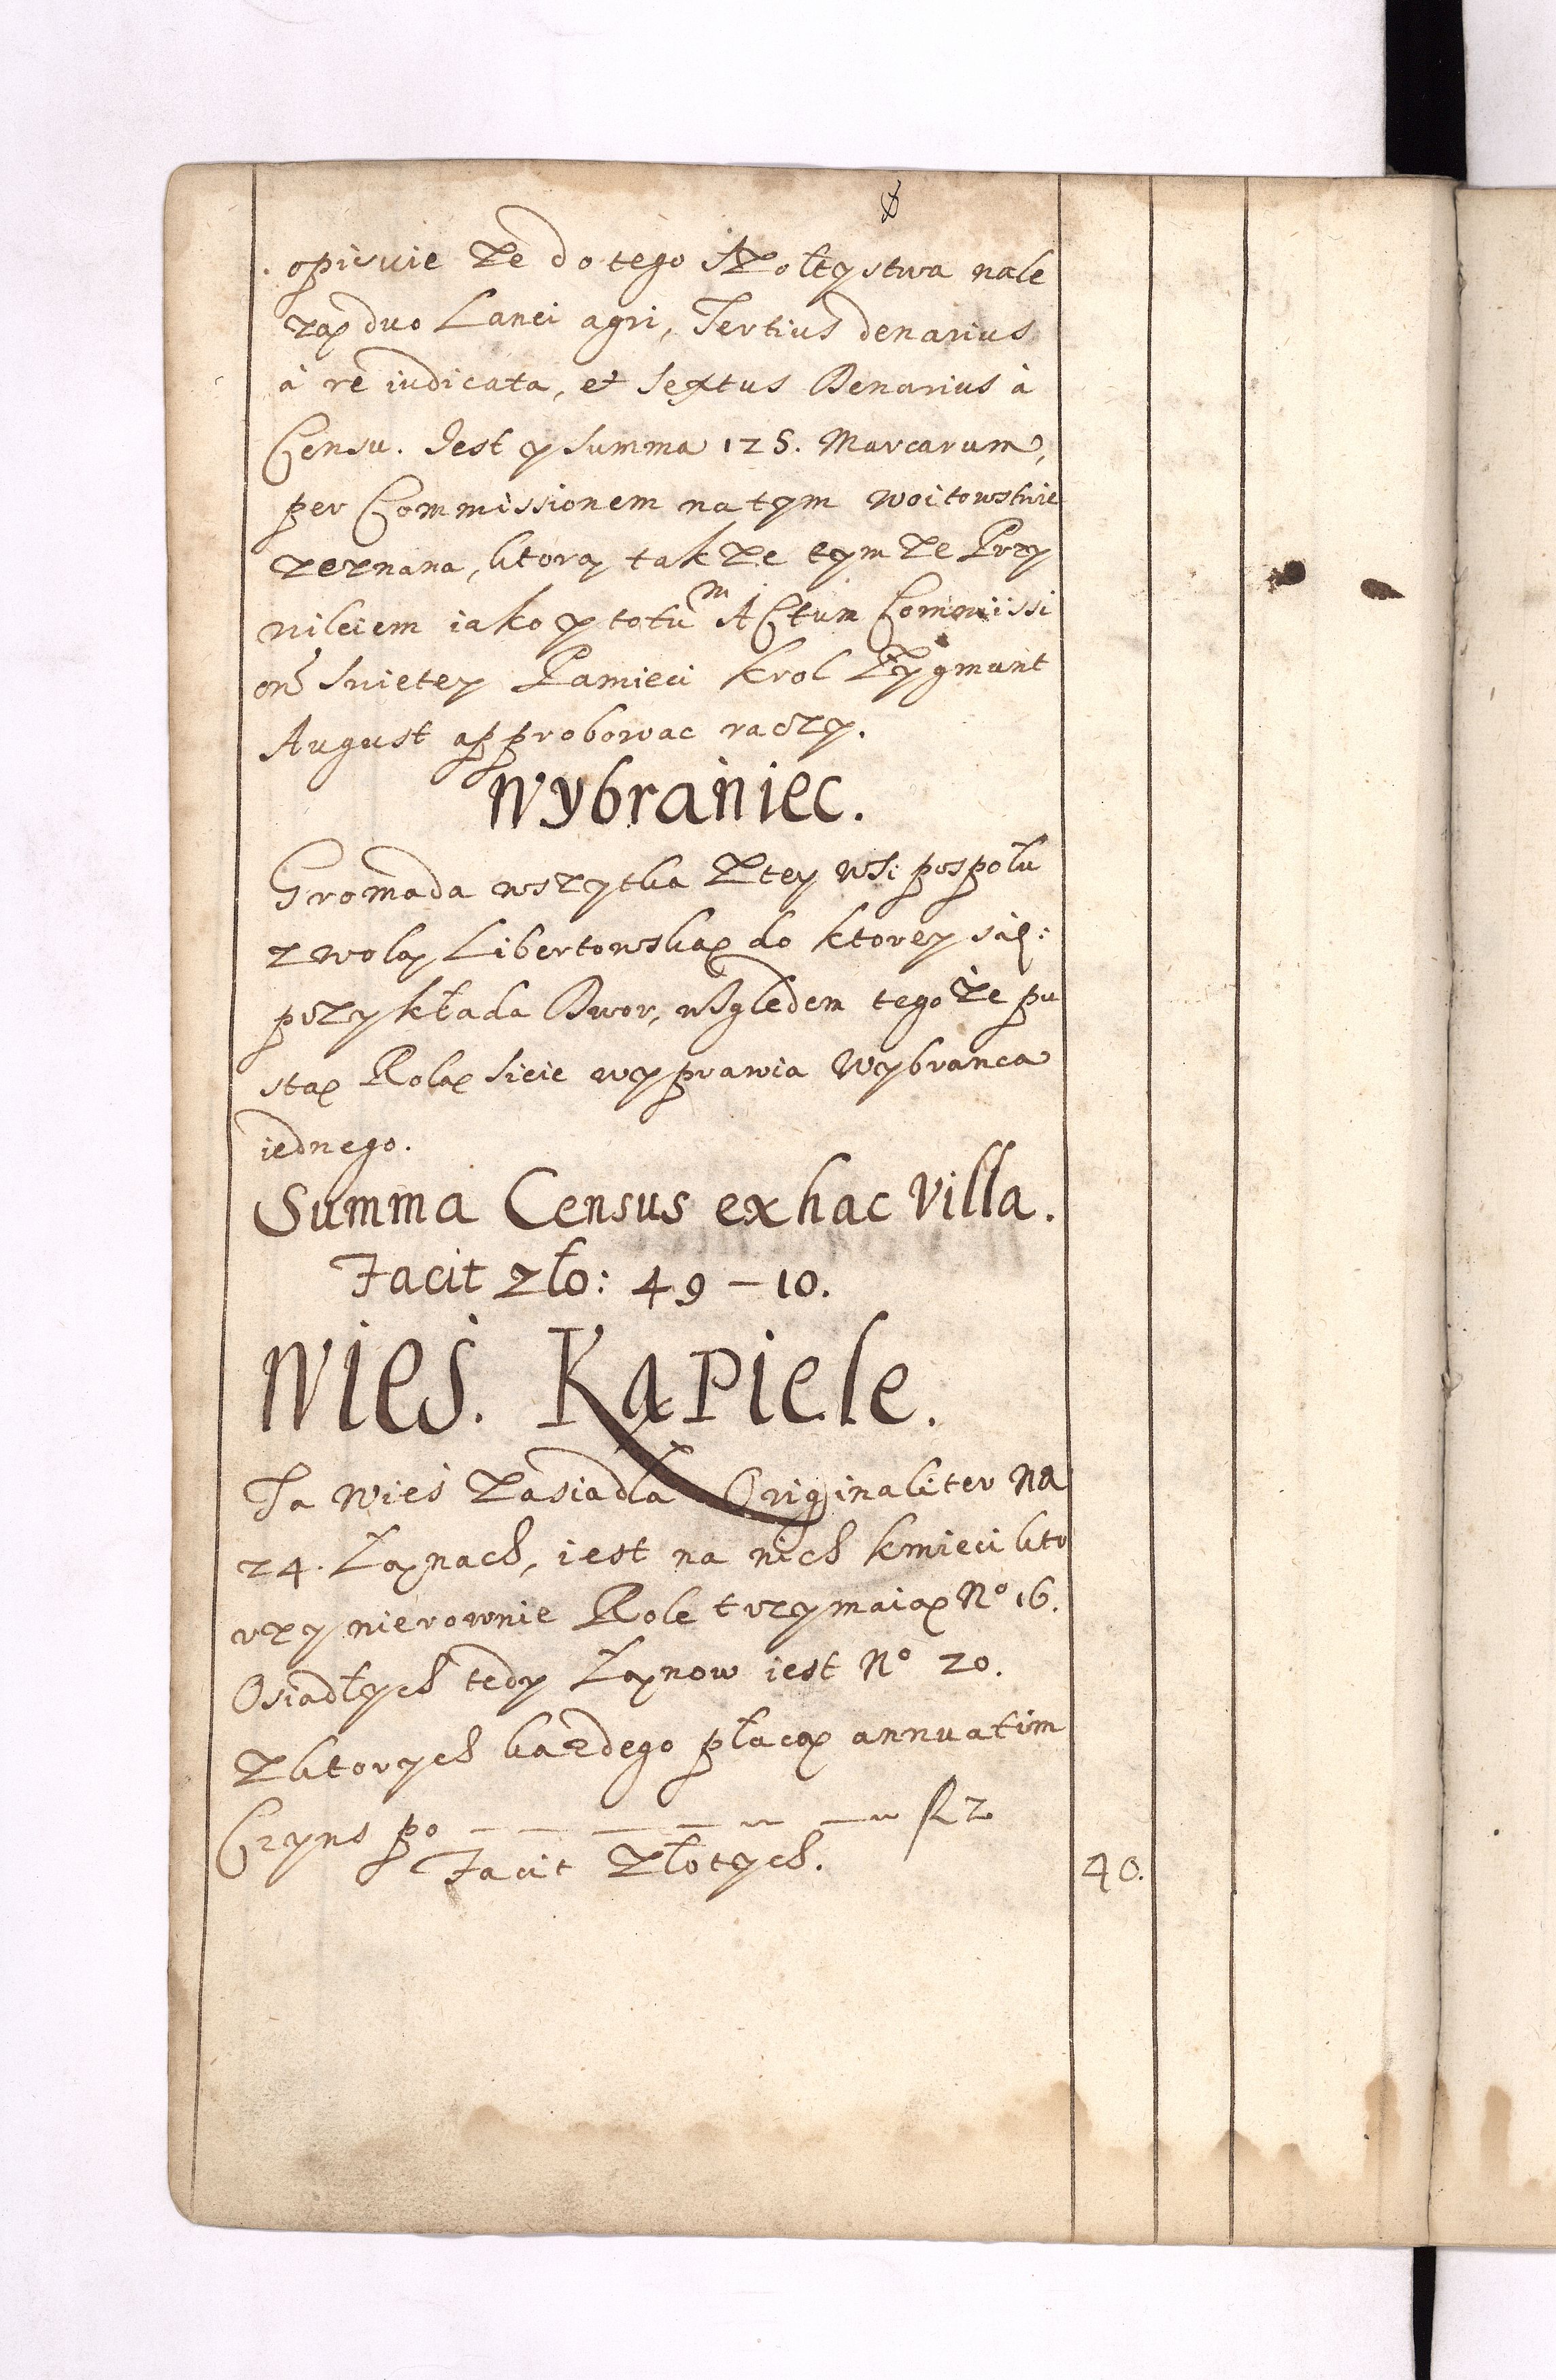 opisuie że do tego Szołtystwa nale
żą duo Lanei agri, Tertius denarius
à re iudicata, et Sextus Denarius à
Censu. Jest y summa 125. Marcarum,
per Commissionem na tym woitowstwie
zeznana, ktorą takze tymze Przy
wileiem iako y totum Actum Commissi
onis Swietey Pamieci krol Zygmunt
August approbowac raczy.
Wybraniec.
Gromada wszytka z tey wsi pospołu
z wolą Libertowską do ktorey się:
przykłada Dwor, względem tego że pu
stą Rolą sieie wyprawia Wybranca
iednego.
Summa Census ex hac Villa.
Facit zło: 49 – 10.
Wieś. Kąpiele.
Ta Wieś Zasiadła Originaliter na
24. Łanach, iest na nich kmieci kto
rzy nierownie Role trzymaią No 16.
Osiadłych tedy Łanow iest No 20.
Z ktorych kazdego płacą annuatim
Czyns po – – – – – – fl 2
Facit Złotych. 40.